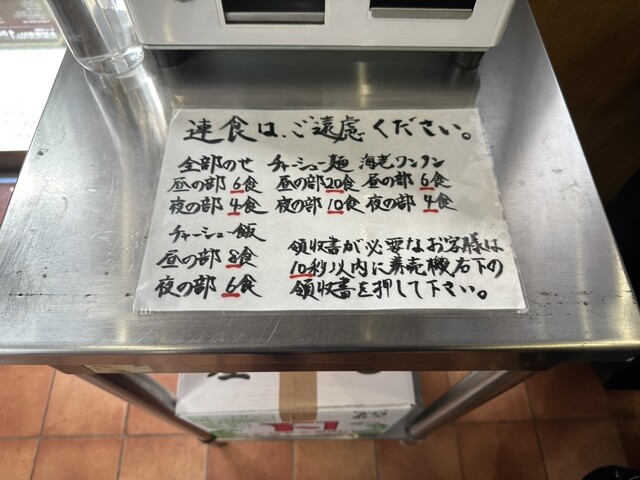 連食は、ご遠慮ください。
全部のせ
昼の部 6食
夜の部 4食
チャーシュー麺
昼の部 20食
夜の部 10食
海老ワンタン
昼の部 6食
夜の部 4食
チャーシュー飯
昼の部 8食
夜の部 6食
領収書が必要なお客様は
10秒以内に券売機右下の
領収書を押して下さい。